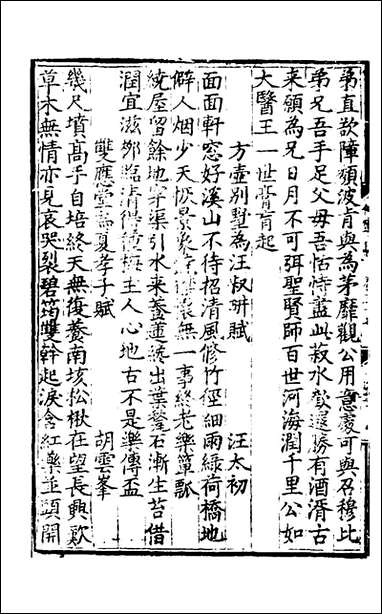 弟直欲障頽波肯與為茅靡觀公用意處可與召穆比
弟兄吾手足父母吾怙恃盡此菽水歡遑勝有酒湑古
来願為兄日月不可弭聖賢師百世河海潤千里公如
大醫王一世膏肓起
方壷别墅為汪叔玡賦 汪太初
面面軒窓好溪山不待招清風修竹徑細雨緑荷橋地
僻人烟少天低景象 懷無一事終老樂簞瓢
繞屋留餘地穿渠引水来養蓮終出葉鑿石漸生苔借
潤宜滋 臨清得 梅主人心地古不是樂傳盃
雙應堂為夏孝子賦 胡雲峯
幾尺墳髙手自培終天無復養南垓松楸在望長興歎
草木無情亦見哀哭裂碧筠雙幹起淚含紅藥並頭開